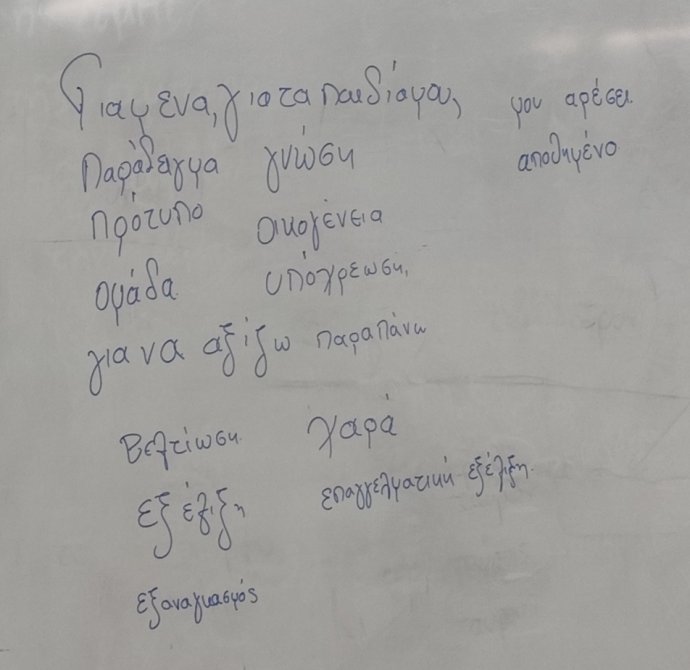 Για μενα, για τα παιδία μου, μου αρέσει.
Παράδειγμα γνώση αποθημένο
πρότυπο οικογένεια
ομάδα υπόχρεωση,
για να αξίζω παραπάνω
Βελτίωση χαρά
εξέλιξη επαγγελματική εξέλιξη.
εξαναγκασμός